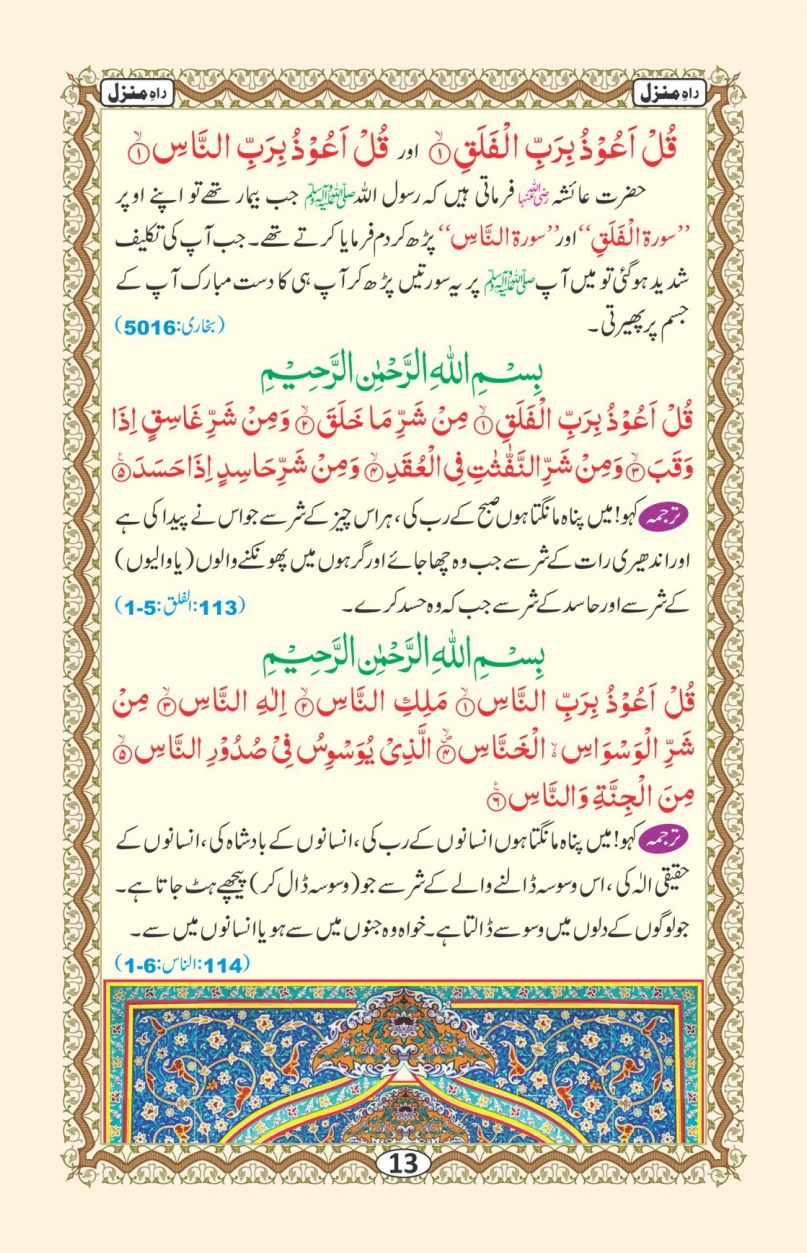 راہِ منزل
راہِ منزل
قُلْ اَعُوْذُ بِرَبِّ الْفَلَقِ ۙ﴿۱﴾ اور قُلْ اَعُوْذُ بِرَبِّ النَّاسِ ۙ﴿۱﴾
حضرت عائشہ رضی اللہ عنہا فرماتی ہیں کہ رسول اللہ صلی اللہ علیہ وسلم جب بیمار تھے تو اپنے اوپر
’’سورۃ الْفَلَقِ‘‘ اور ’’سورۃ النَّاسِ‘‘ پڑھ کر دم فرمایا کرتے تھے۔ جب آپ کی تکلیف
شدید ہوگئی تو میں آپ صلی اللہ علیہ وسلم پر یہ سورتیں پڑھ کر آپ ہی کا دست مبارک آپ کے
جسم پر پھیرتی۔ (بخاری:5016)
بِسْمِ اللّٰهِ الرَّحْمٰنِ الرَّحِيْمِ
قُلْ اَعُوْذُ بِرَبِّ الْفَلَقِ ۙ﴿۱﴾ مِنْ شَرِّ مَا خَلَقَ ۙ﴿۲﴾ وَمِنْ شَرِّ غَاسِقٍ اِذَا
وَقَبَ ۙ﴿۳﴾ وَمِنْ شَرِّ النَّفّٰثٰتِ فِی الْعُقَدِ ۙ﴿۴﴾ وَمِنْ شَرِّ حَاسِدٍ اِذَا حَسَدَ ﴿۵﴾
ترجمہ کہو! میں پناہ مانگتا ہوں صبح کے رب کی، ہر اس چیز کے شر سے جو اس نے پیدا کی ہے
اور اندھیری رات کے شر سے جب وہ چھا جائے اور گرہوں میں پھونکنے والوں (یا والیوں)
کے شر سے اور حاسد کے شر سے جب کہ وہ حسد کرے۔ (113:الفلق:5-1)
بِسْمِ اللّٰهِ الرَّحْمٰنِ الرَّحِيْمِ
قُلْ اَعُوْذُ بِرَبِّ النَّاسِ ۙ﴿۱﴾ مَلِكِ النَّاسِ ۙ﴿۲﴾ اِلٰهِ النَّاسِ ۙ﴿۳﴾ مِنْ
شَرِّ الْوَسْوَاسِ ۙ الْخَنَّاسِ ﴿۴﴾ الَّذِیْ یُوَسْوِسُ فِیْ صُدُوْرِ النَّاسِ ۙ﴿۵﴾
مِنَ الْجِنَّةِ وَالنَّاسِ ﴿۶﴾
ترجمہ کہو! میں پناہ مانگتا ہوں انسانوں کے رب کی، انسانوں کے بادشاہ کی، انسانوں کے
حقیقی الٰہ کی، اس وسوسہ ڈالنے والے کے شر سے جو (وسوسہ ڈال کر) پیچھے ہٹ جاتا ہے۔
جو لوگوں کے دلوں میں وسوسے ڈالتا ہے۔ خواہ وہ جنوں میں سے ہو یا انسانوں میں سے۔
(114:الناس:6-1)
13